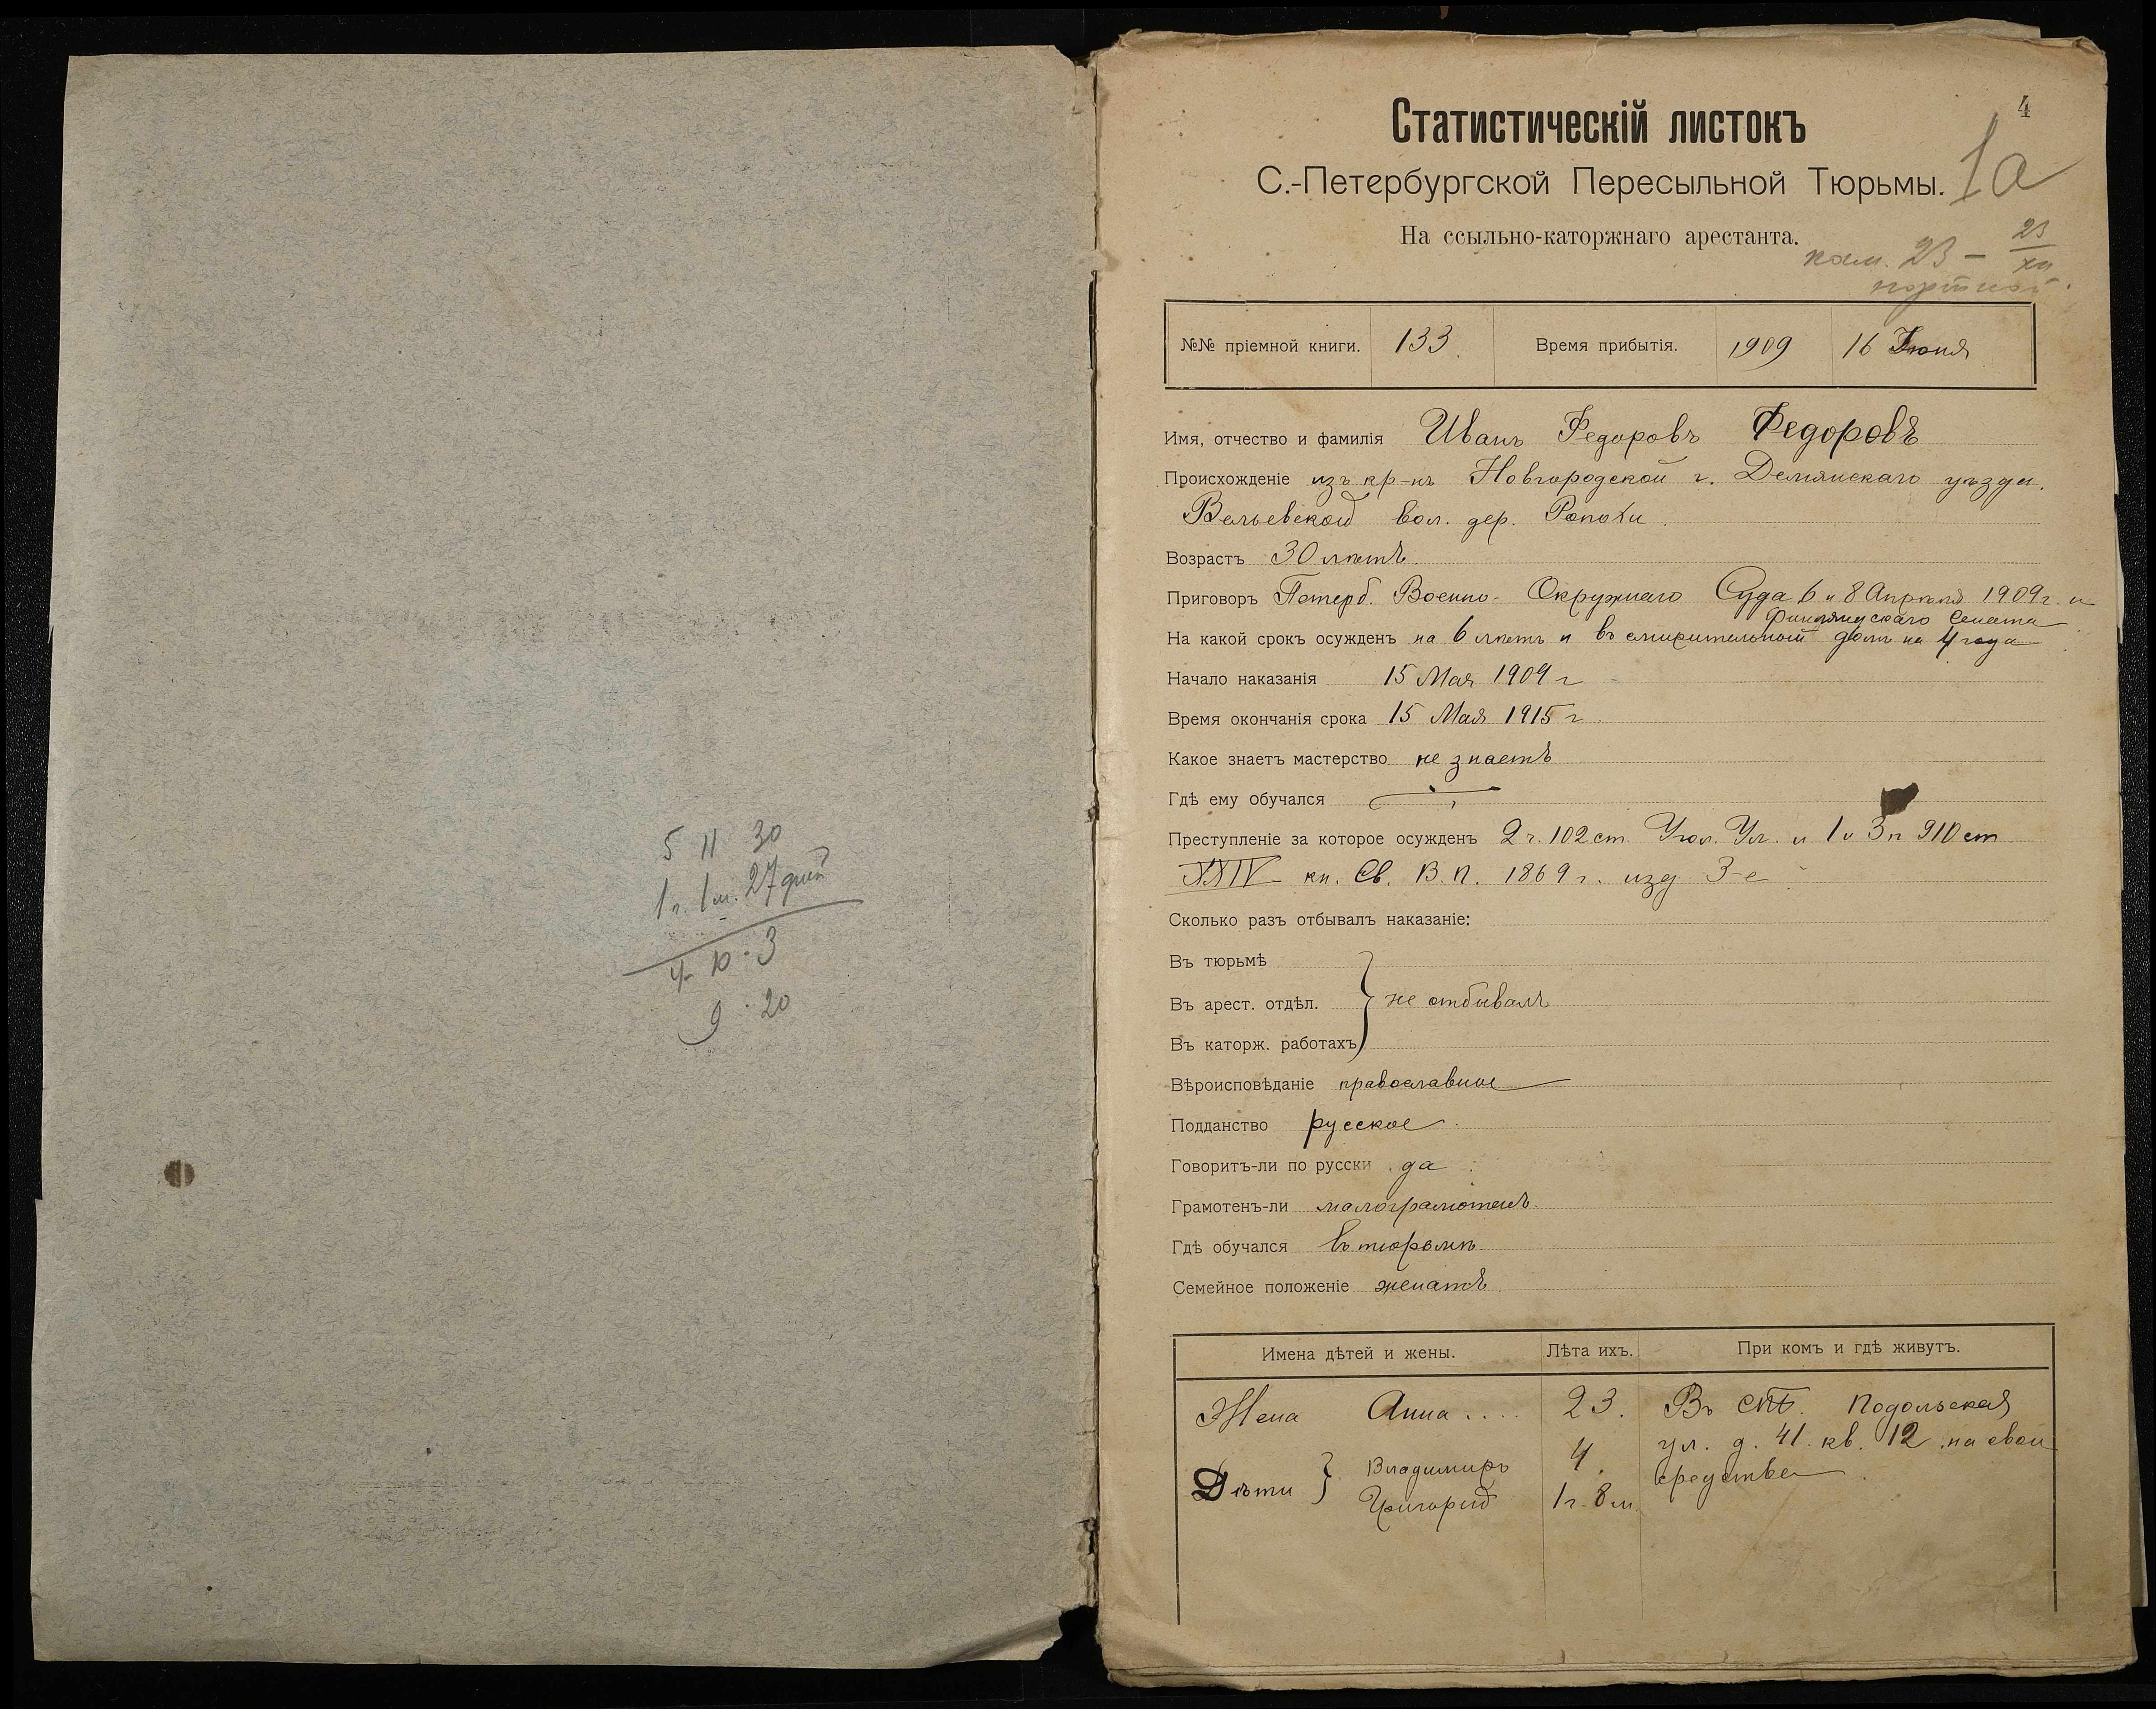 5 11 30
1 г. 1 м. 27 дней
4 - 10 - 3
9 · 20
4
Статистическій листокъ
1а
С.-Петербургской Пересыльной Тюрьмы.
На ссыльно-каторжнаго арестанта.
кам. 23 – 23/XII
портной.
№№ пріемной книги. 133. Время прибытія. 1909 16 Іюня
Имя, отчество и фамилія Иванъ Федоровъ Федоровъ
Происхожденіе изъ кр-нъ Новгородской г. Демянскаго уѣзда.
Вельевской вол. дер.
Возрастъ 30 лѣтъ.
Приговоръ Петерб. Военно-Окружнаго Суда 6 и 8 Апрѣля 1909 г. и
Финляндскаго Сената
На какой срокъ осужденъ на 6 лѣтъ и въ смирительный домъ на 4 года
Начало наказанія 15 Мая 1909 г
Время окончанія срока 15 Мая 1915 г.
Какое знаетъ мастерство не знаетъ
Гдѣ ему обучался
Преступленіе за которое осужденъ 2 ч. 102 ст. Угол. Ул. и 1 и 3 п 910 ст
XXIV кн. Св. В. П. 1869 г. изд 3-е
Сколько разъ отбывалъ наказаніе:
Въ тюрьмѣ
Въ арест. отдѣл. } не отбывалъ
Въ каторж. работахъ
Вѣроисповѣданіе православное
Подданство русское
Говоритъ-ли по русски да
Грамотенъ-ли малограмотенъ
Гдѣ обучался въ тюрьмѣ
Семейное положеніе женатъ
Имена дѣтей и жены. Лѣта ихъ. При комъ и гдѣ живутъ.
Жена Анна .... 23. Въ СПБ. Подольская
ул. д. 41. кв. 12. на свои
Дѣти } Владимиръ 4. средства
Григорій 1 г. 8 м.